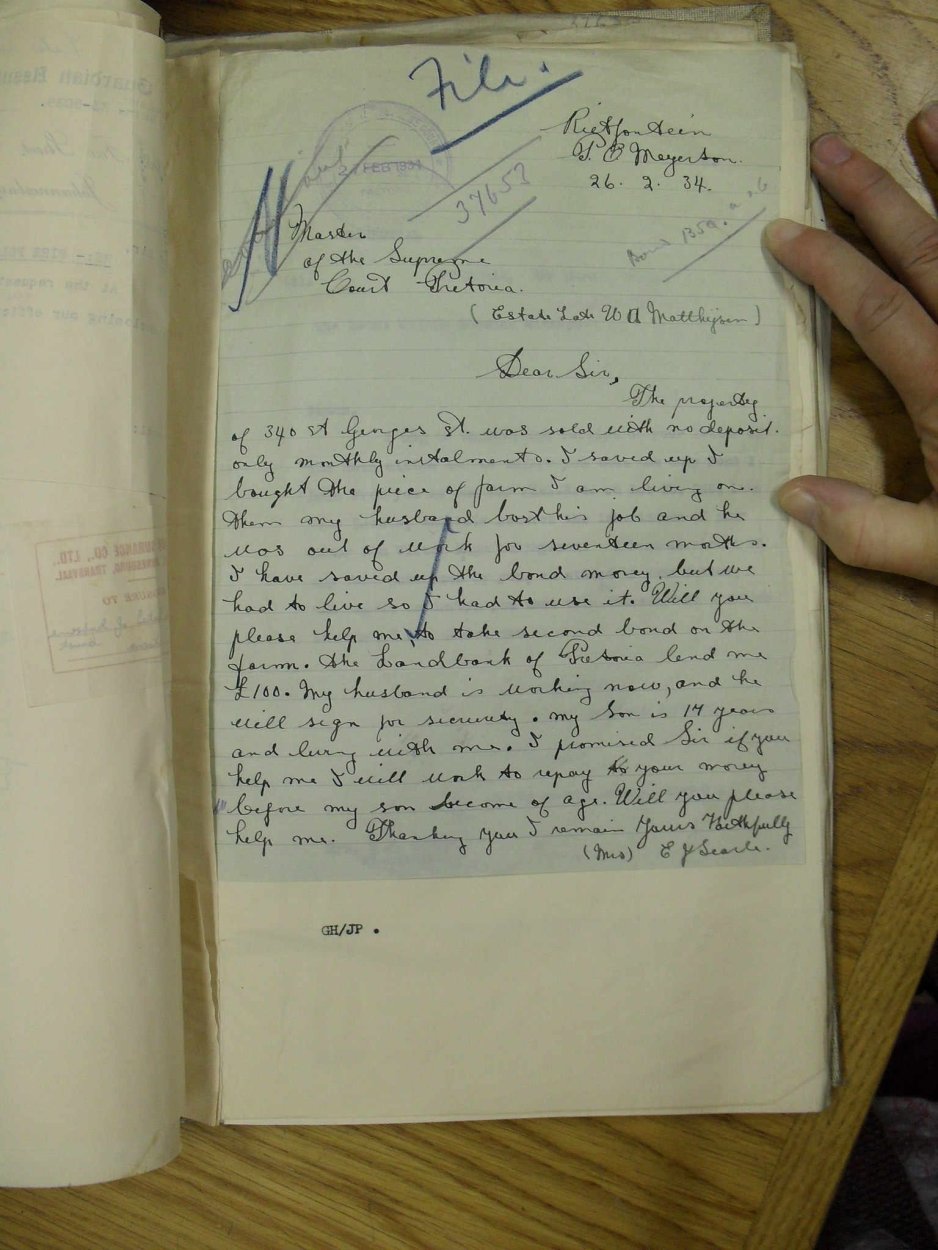 File.
Rietfontein
P. O Meyerton.
26. 2. 34.
2 FEB 1934
37653
Bond B59.
Master
of the Supreme
Court Pretoria.
(Estate Late W A Matthysen)
Dear Sir,
The property
of 340 St Georges St. was sold with no deposit.
only monthly instalments. I saved up I
bought the piece of farm I am living one.
them my husband bost his job and he
was out of work for seventeen months.
I have saved up the bond money, but we
had to live so I had to use it. Will you
please help me to take second bond on the
farm. the Landbank of Pretoria lend me
£100. My husband is working now, and he
will sign for security. my Son is 17 years
and living with me. I promised Sir if you
help me I will work to repay to your money
before my son become of age. Will you please
help me. Thanking you I remain Yours Faithfully
(Mrs) E J Searle.
GH/JP .